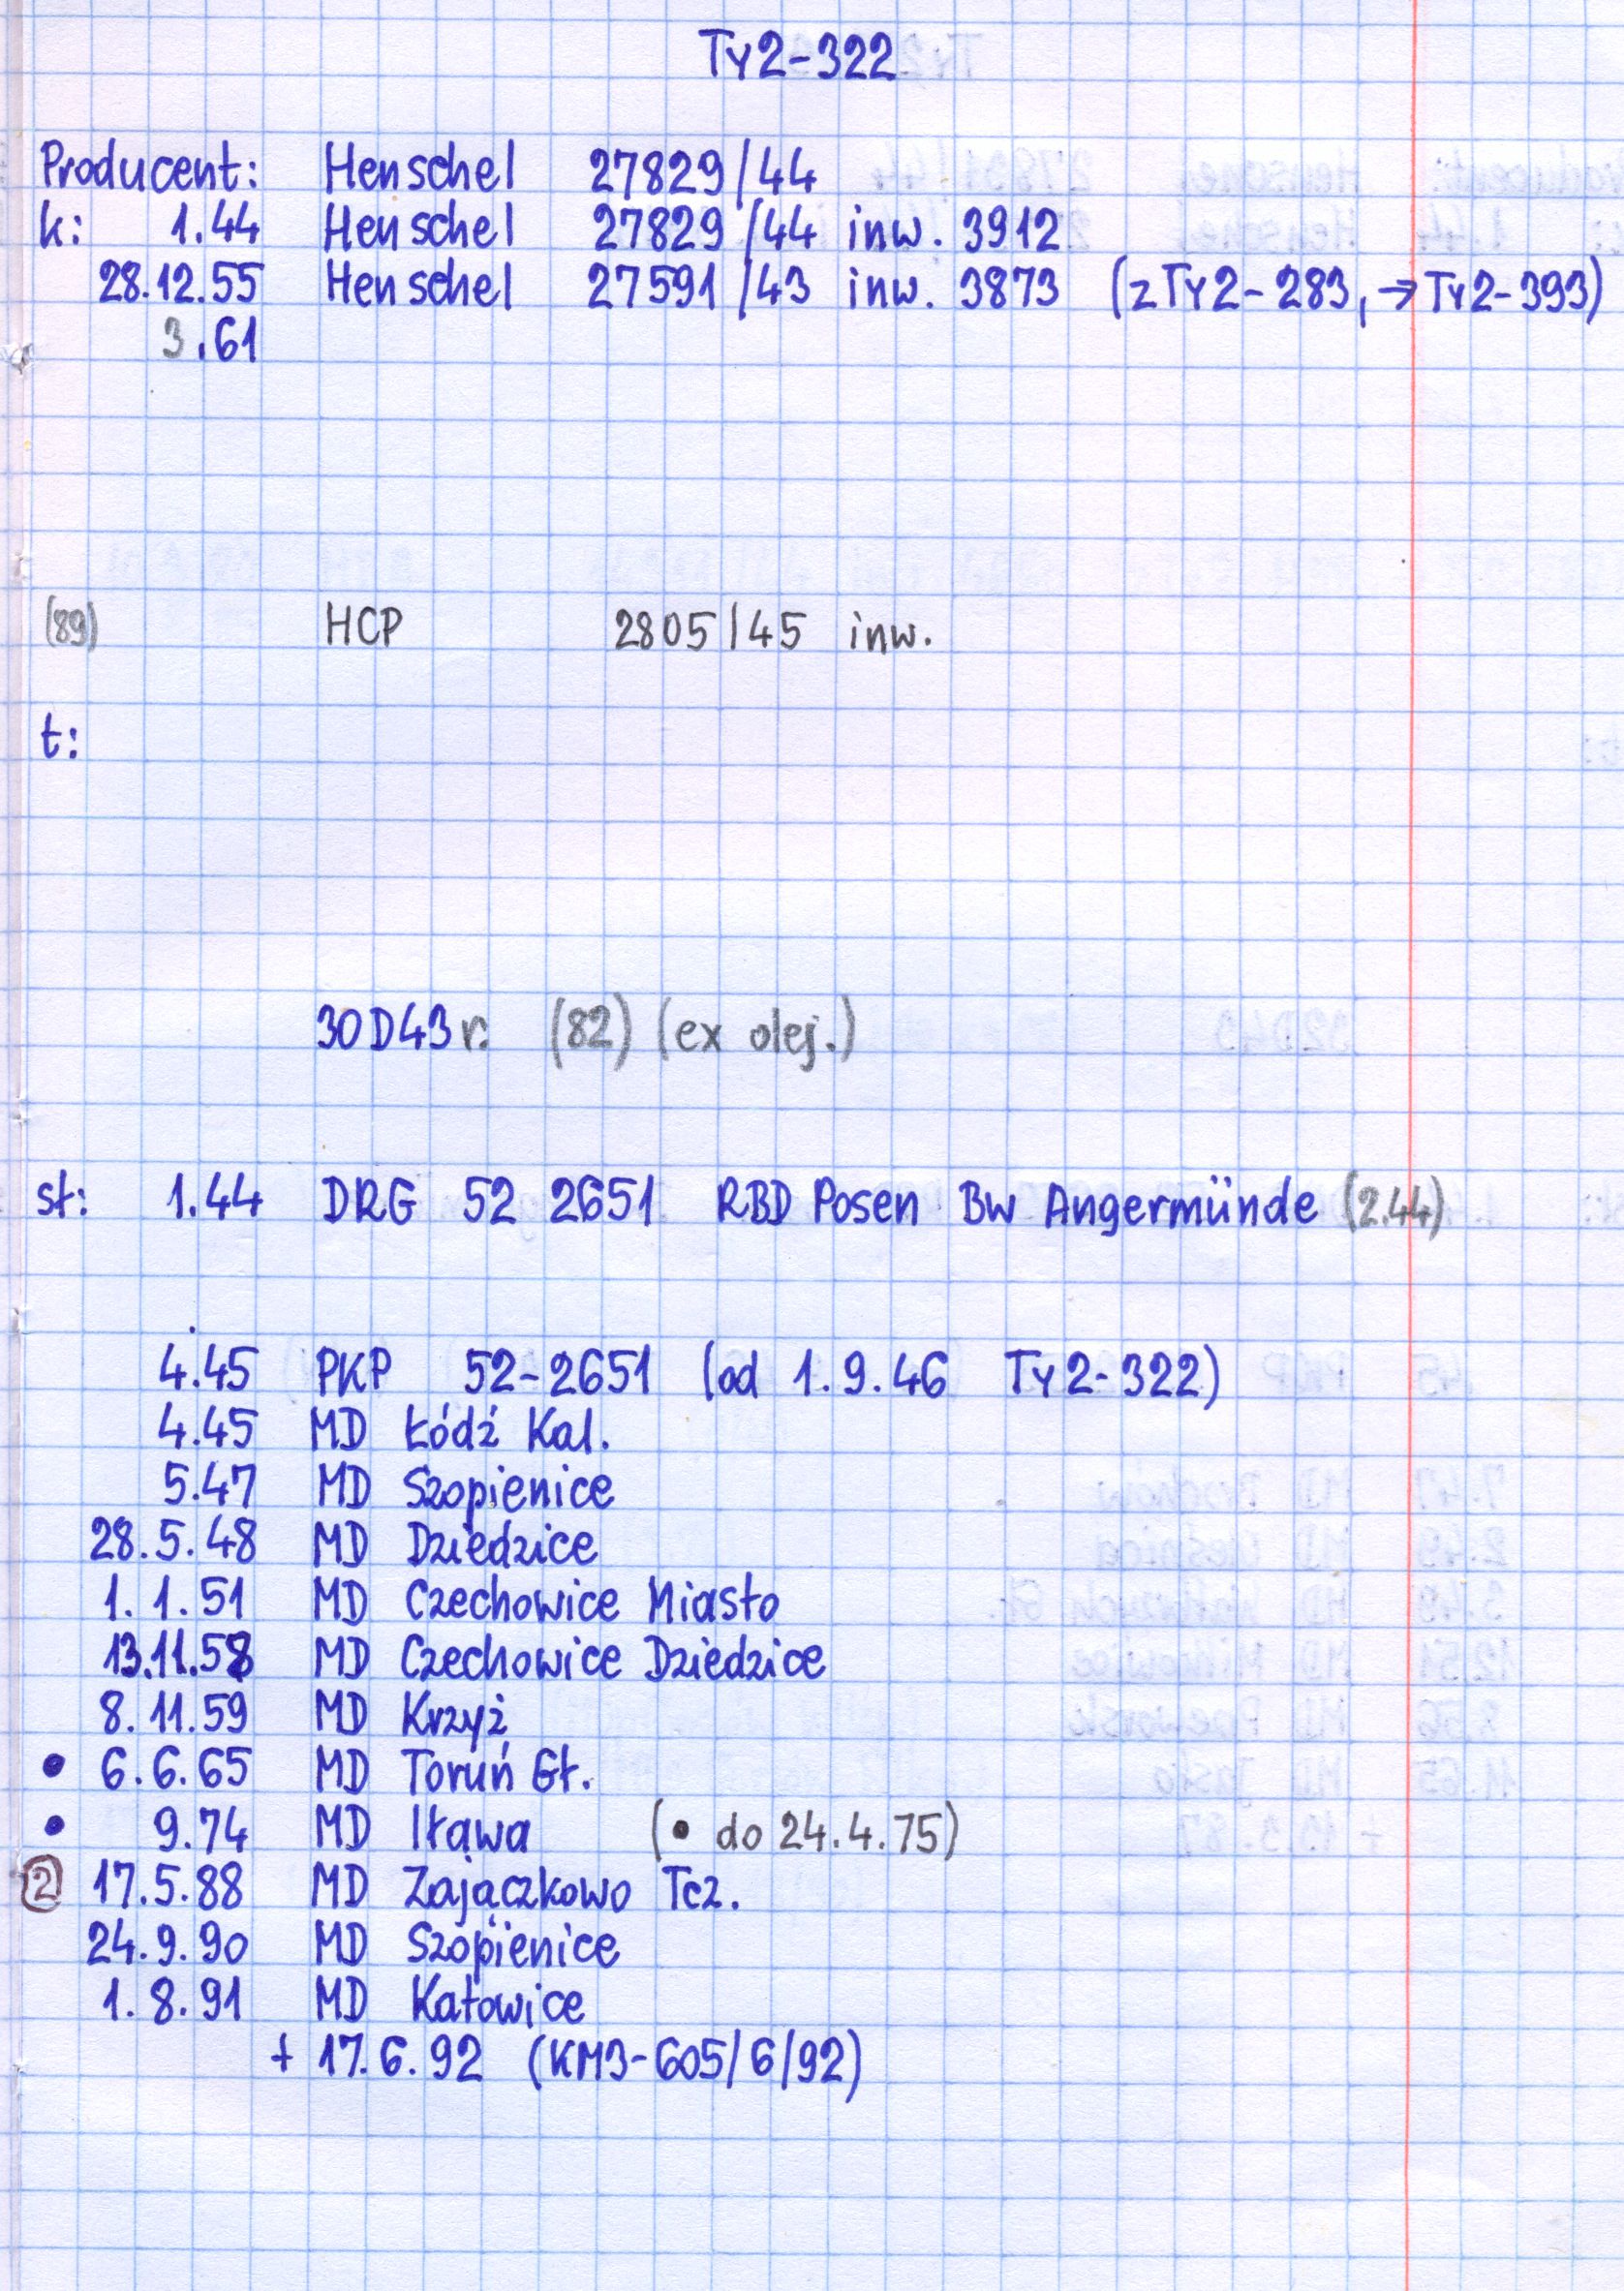 Ty2-322
Producent: Henschel 27829/44
k: 1.44 Henschel 27829/44 inw. 3912
28.12.55 Henschel 27591/43 inw. 3873 (z Ty2-283, → Ty2-393)
3.61
(89) HCP 2805/45 inw.
t:
30D43 r. (82) (ex olej.)
st: 1.44 DRG 52 2651 RBD Posen Bw Angermünde (2.44)
4.45 PKP 52-2651 (od 1.9.46 Ty2-322)
4.45 MD Łódź Kal.
5.47 MD Szopienice
28.5.48 MD Dziedzice
1.1.51 MD Czechowice Miasto
13.11.58 MD Czechowice Dziedzice
8.11.59 MD Krzyż
• 6.6.65 MD Toruń Gł.
• 9.74 MD Iława (• do 24.4.75)
② 17.5.88 MD Zajączkowo Tcz.
24.9.90 MD Szopienice
1.8.91 MD Katowice
+ 17.6.92 (KM3-605/6/92)